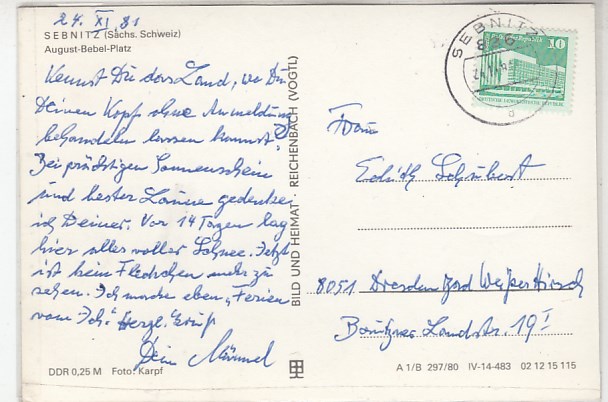 24. XI. 81
SEBNITZ (Sächs. Schweiz)
August-Bebel-Platz
Kennst Du das Land, wo Du
Deinen Kopf ohne Anmeldung
behandeln lassen kannst?
Bei prächtigen Sonnenschein
und bester Laune gedenke
ich Deiner. Vor 14 Tagen lag
hier alles voller Schnee. Jetzt
ist kein Fleckchen mehr zu
sehen. Ich mache eben „Ferien
vom Ich." Herzl. Gruß
Dein
DDR 0,25 M Foto: Karpf
BILD UND HEIMAT · REICHENBACH (VOGTL)
SEBNITZ
836
10
DEUTSCHE DEMOKRATISCHE REPUBLIK
Frau
Edith Schubert
8051 Dresden Bad Weißer Hirsch
Bautzner Landstr. 19 I
A 1/B 297/80 IV-14-483 02 12 15 115